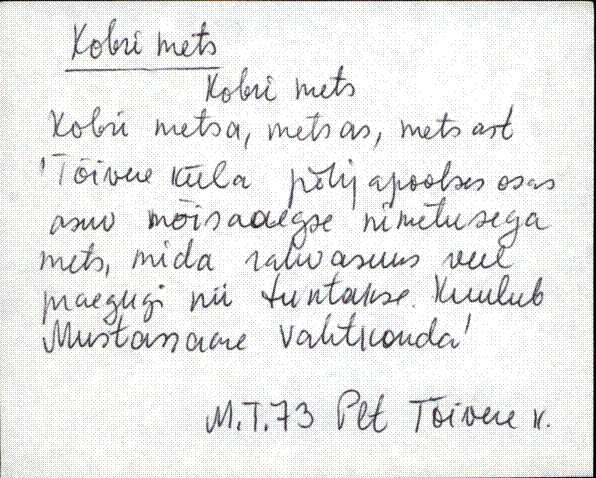 Kobri mets
Kobri mets
Kobri metsa, metsas, metsast
'Tõivere küla põhjapoolses osas
asuv mõisaaegse nimetusega
mets, mida rahvasuus veel
praegugi nii tuntakse. Kuulub
Mustassaare vahtkonda'
M.T.73 Plt Tõivere k.